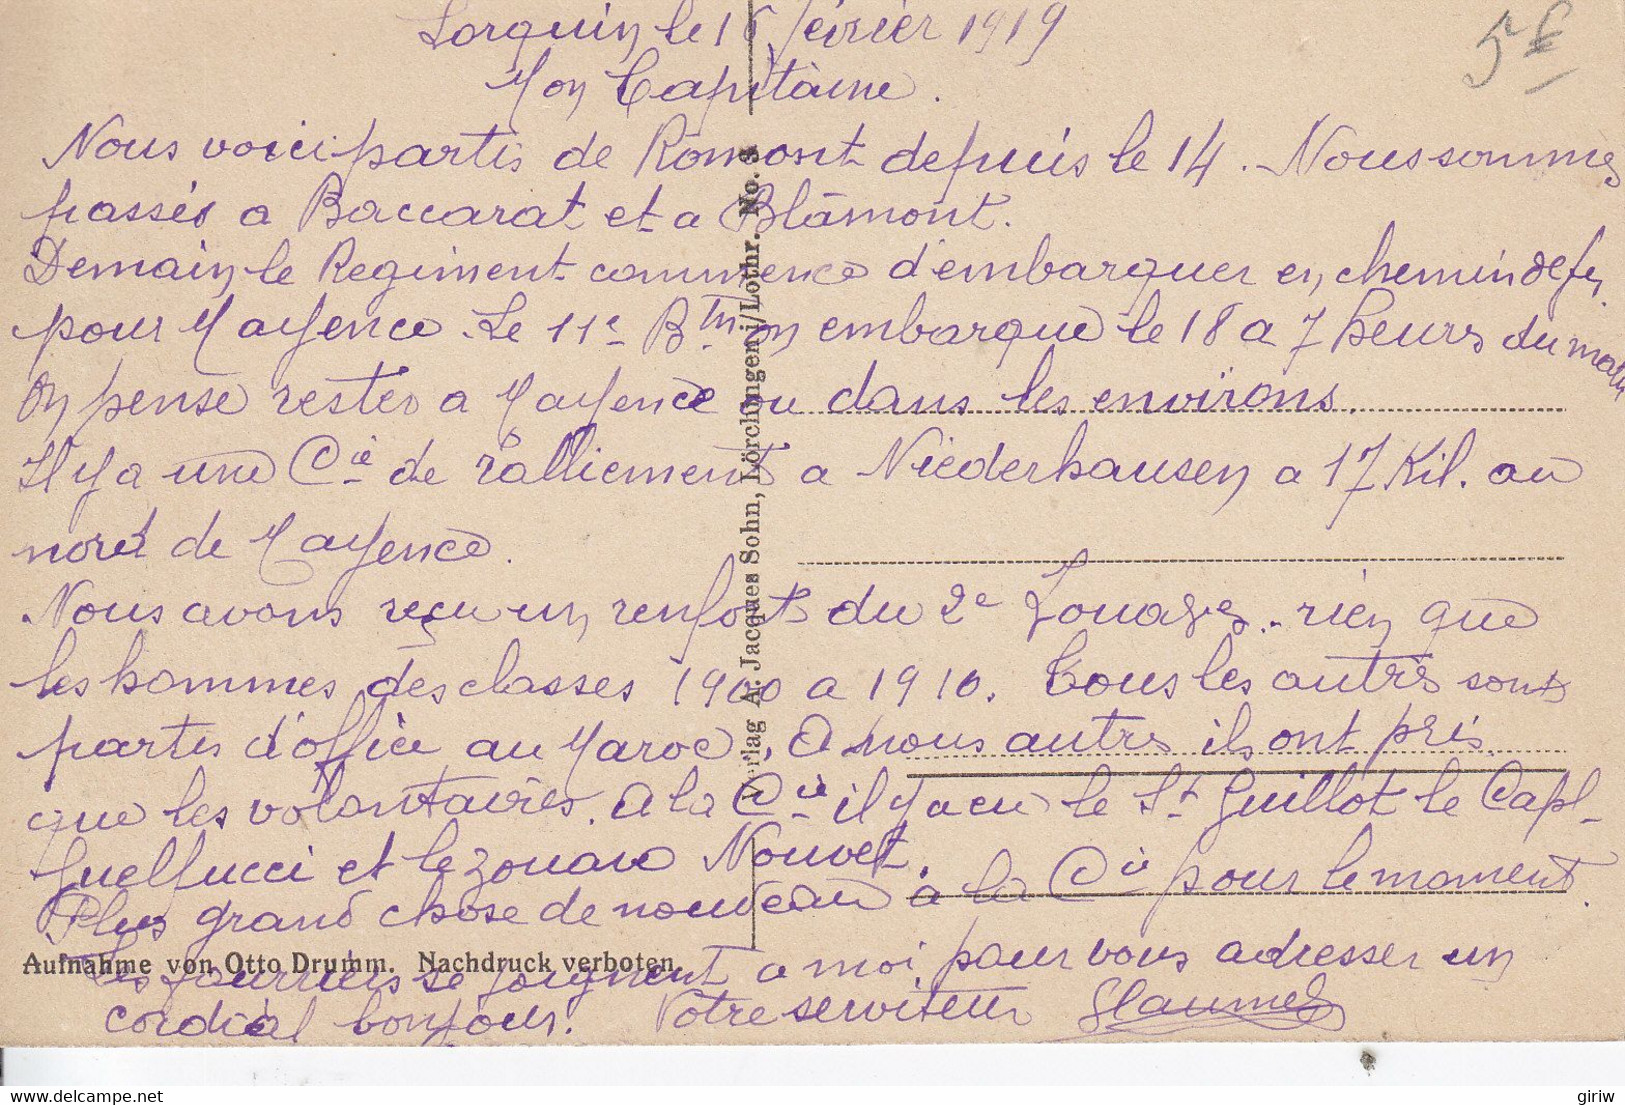 Lorquin le 16 février 1919
5 €
Mon Capitaine.
Nous voici partis de Romont depuis le 14. Nous sommes
passés a Baccarat et a Blâmont.
Demain le Regiment commence d'embarquer en chemin de fer
pour Mayence. Le 11e Btn on embarque le 18 a 7 heures du matin
On pense rester a Mayence ou dans les environs.
Il y a une Cie de ralliement a Niederhausen a 17 Kil. au
nord de Mayence.
Nous avons reçu un renfort du 2e Zouaves. rien que
les hommes des classes 1900 a 1910. Tous les autres sont
partis d'office au Maroc, A nous autres ils ont pris
que les volontaires. A la Cie il y a eu le St Guillot le Capl
Guelfucci et le zouave Nouvet.
Plus grand chose de nouveau à la Cie pour le moment.
Les fourriers se joignent a moi pour vous adresser un
cordial bonjour. Votre serviteur
Verlag A. Jacques Sohn, Lörchingen i/Lothr. No. 8
Aufnahme von Otto Drumm. Nachdruck verboten.
delcampe.net
giriw